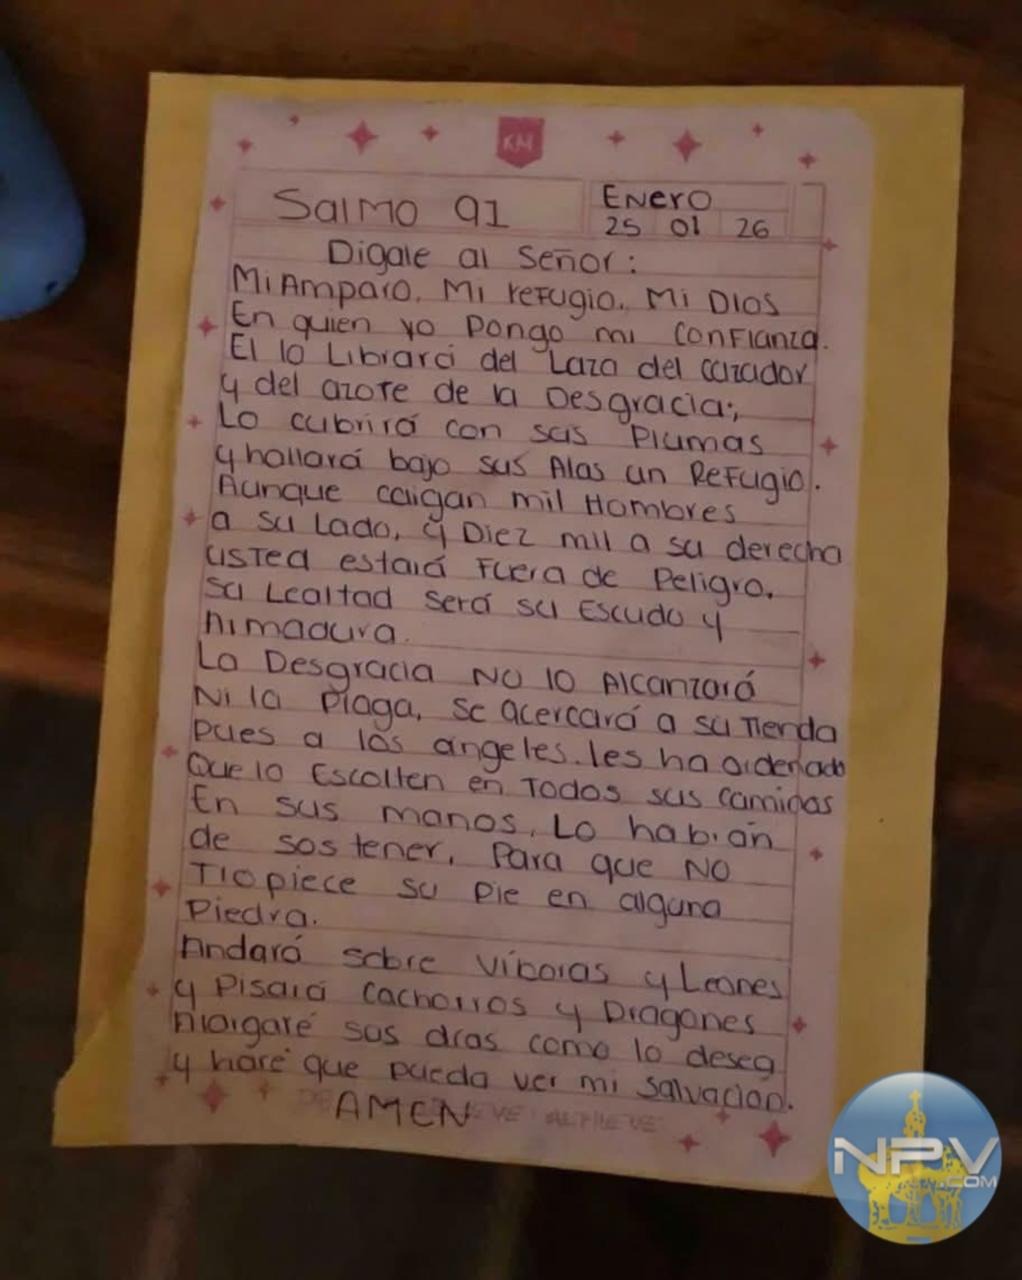 KM
Salmo 91
Enero
25 01 26
Digale al Señor:
Mi Amparo, Mi refugio, Mi Dios
En quien yo Pongo mi confianza.
El lo Librará del Lazo del cazador
y del azote de la Desgracia;,
Lo cubrirá con sus Plumas
y hallará bajo sus Alas un Refugio.
Aunque caigan mil Hombres
a su Lado, y Diez mil a su derecha
usted estará Fuera de Peligro.
su Lealtad será su Escudo y
Armadura.
La Desgracia NO lo Alcanzará
Ni la Plaga, se acercará a su Tienda
pues a los angeles. les ha ordenado
Que lo Escolten en Todos sus caminos
En sus manos, Lo habrán
de sostener, Para que NO
Tropiece su Pie en alguna
Piedra.
Andará sobre Víboras y Leones
y Pisará Cachorros y Dragones
Alargaré sus días como lo desea
y haré que pueda ver mi salvación.
AMEN
NPV
.COM